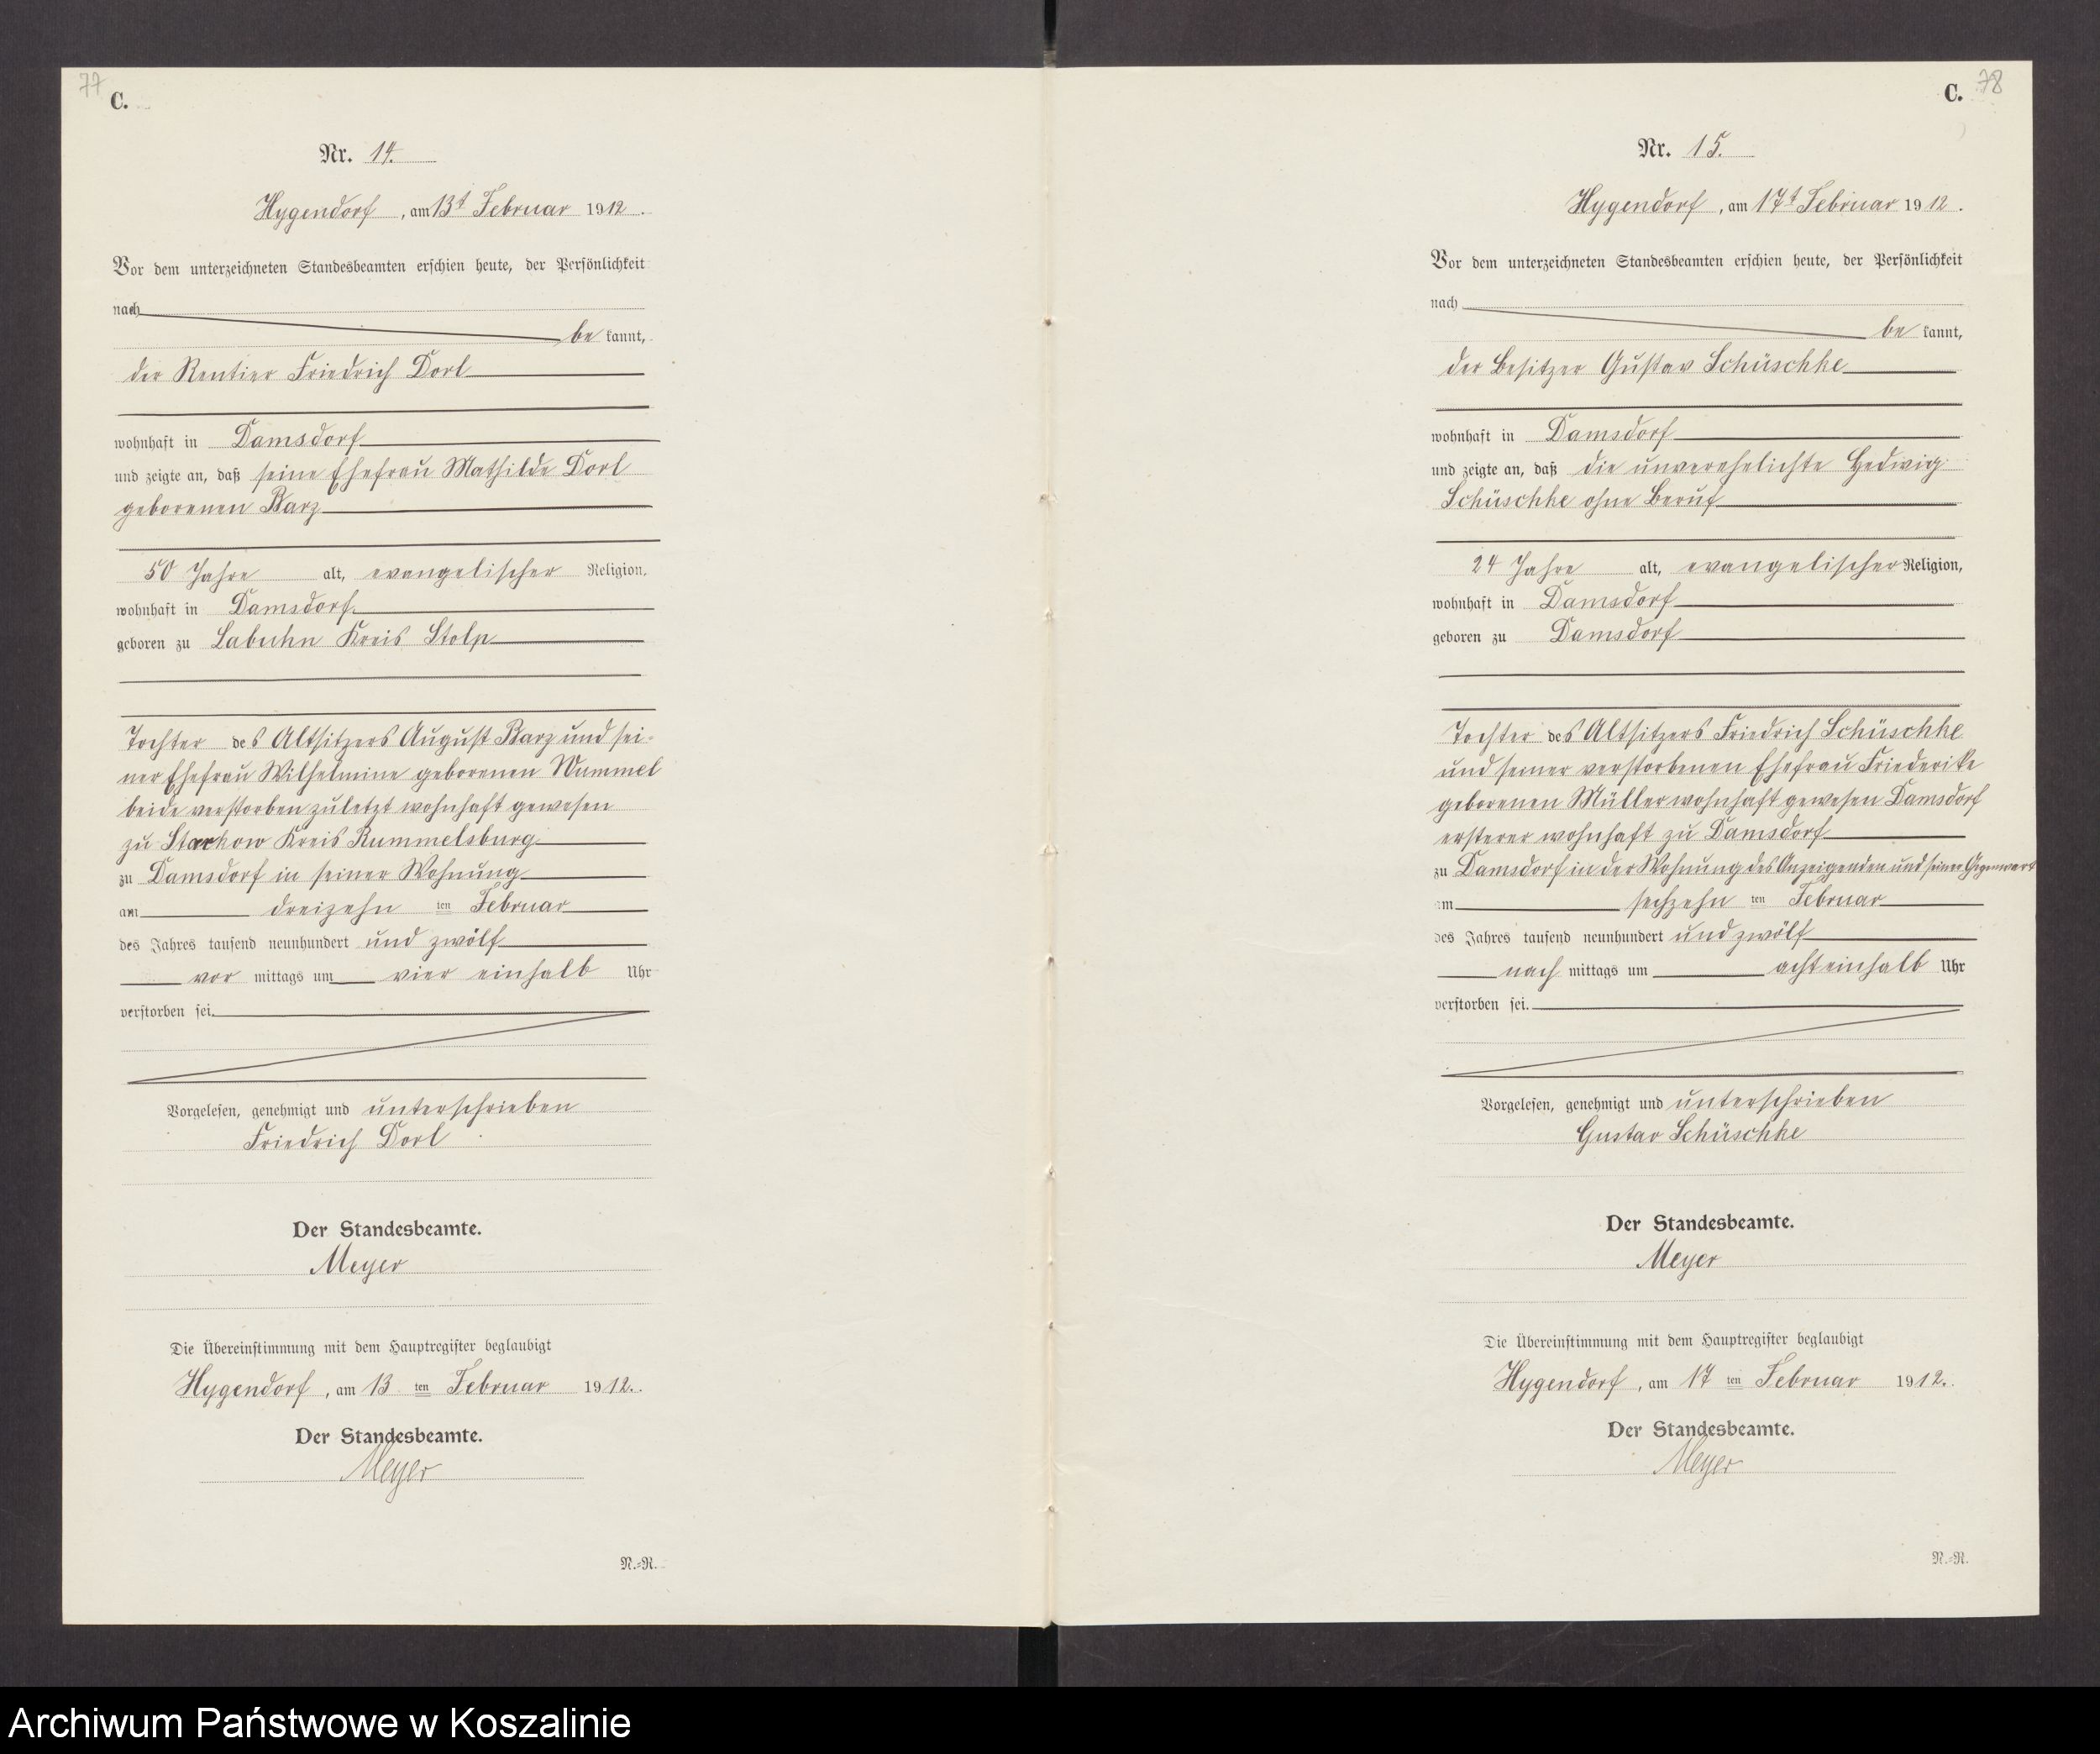 77
C.
Nr. 14.
Hygendorf, am 13t Februar 1912.
Vor dem unterzeichneten Standesbeamten erschien heute, der Persönlichkeit
nach
be kannt,
der Rentier Friedrich Dorl
wohnhaft in Damsdorf
und zeigte an, daß seine Ehefrau Mathilde Dorl
geborenen Barz
50 Jahre alt, evangelischer Religion,
wohnhaft in Damsdorf
geboren zu Labuhn Kreis Stolp
Tochter des Altsitzers August Barz und sei-
ner Ehefrau Wilhelmine geborenen Wummel
beide verstorben zuletzt wohnhaft gewesen
zu Starkow Kreis Rummelsburg
zu Damsdorf in seiner Wohnung
am dreizehn ten Februar
des Jahres tausend neunhundert und zwölf
vor mittags um vier einhalb Uhr
verstorben sei.
Vorgelesen, genehmigt und unterschrieben
Friedrich Dorl
Der Standesbeamte.
Meyer
Die Übereinstimmung mit dem Hauptregister beglaubigt
Hygendorf, am 13 ten Februar 1912.
Der Standesbeamte.
Meyer
N.=R.
78
C.
Nr. 15.
Hygendorf, am 17t Februar 1912.
Vor dem unterzeichneten Standesbeamten erschien heute, der Persönlichkeit
nach
be kannt,
der Besitzer Gustav Schüschke
wohnhaft in Damsdorf
und zeigte an, daß die unverehelichte Hedwig
Schüschke ohne Beruf
24 Jahre alt, evangelischer Religion,
wohnhaft in Damsdorf
geboren zu Damsdorf
Tochter des Altsitzers Friedrich Schüschke
und seiner verstorbenen Ehefrau Friederike
geborenen Müller wohnhaft gewesen Damsdorf
ersterer wohnhaft zu Damsdorf
zu Damsdorf in der Wohnung des Anzeigenden und seiner Gegenwart
am sechzehn ten Februar
des Jahres tausend neunhundert und zwölf
nach mittags um acht einhalb Uhr
verstorben sei.
Vorgelesen, genehmigt und unterschrieben
Gustav Schüschke
Der Standesbeamte.
Meyer
Die Übereinstimmung mit dem Hauptregister beglaubigt
Hygendorf, am 17 ten Februar 1912.
Der Standesbeamte.
Meyer
N.=R.
Archiwum Państwowe w Koszalinie